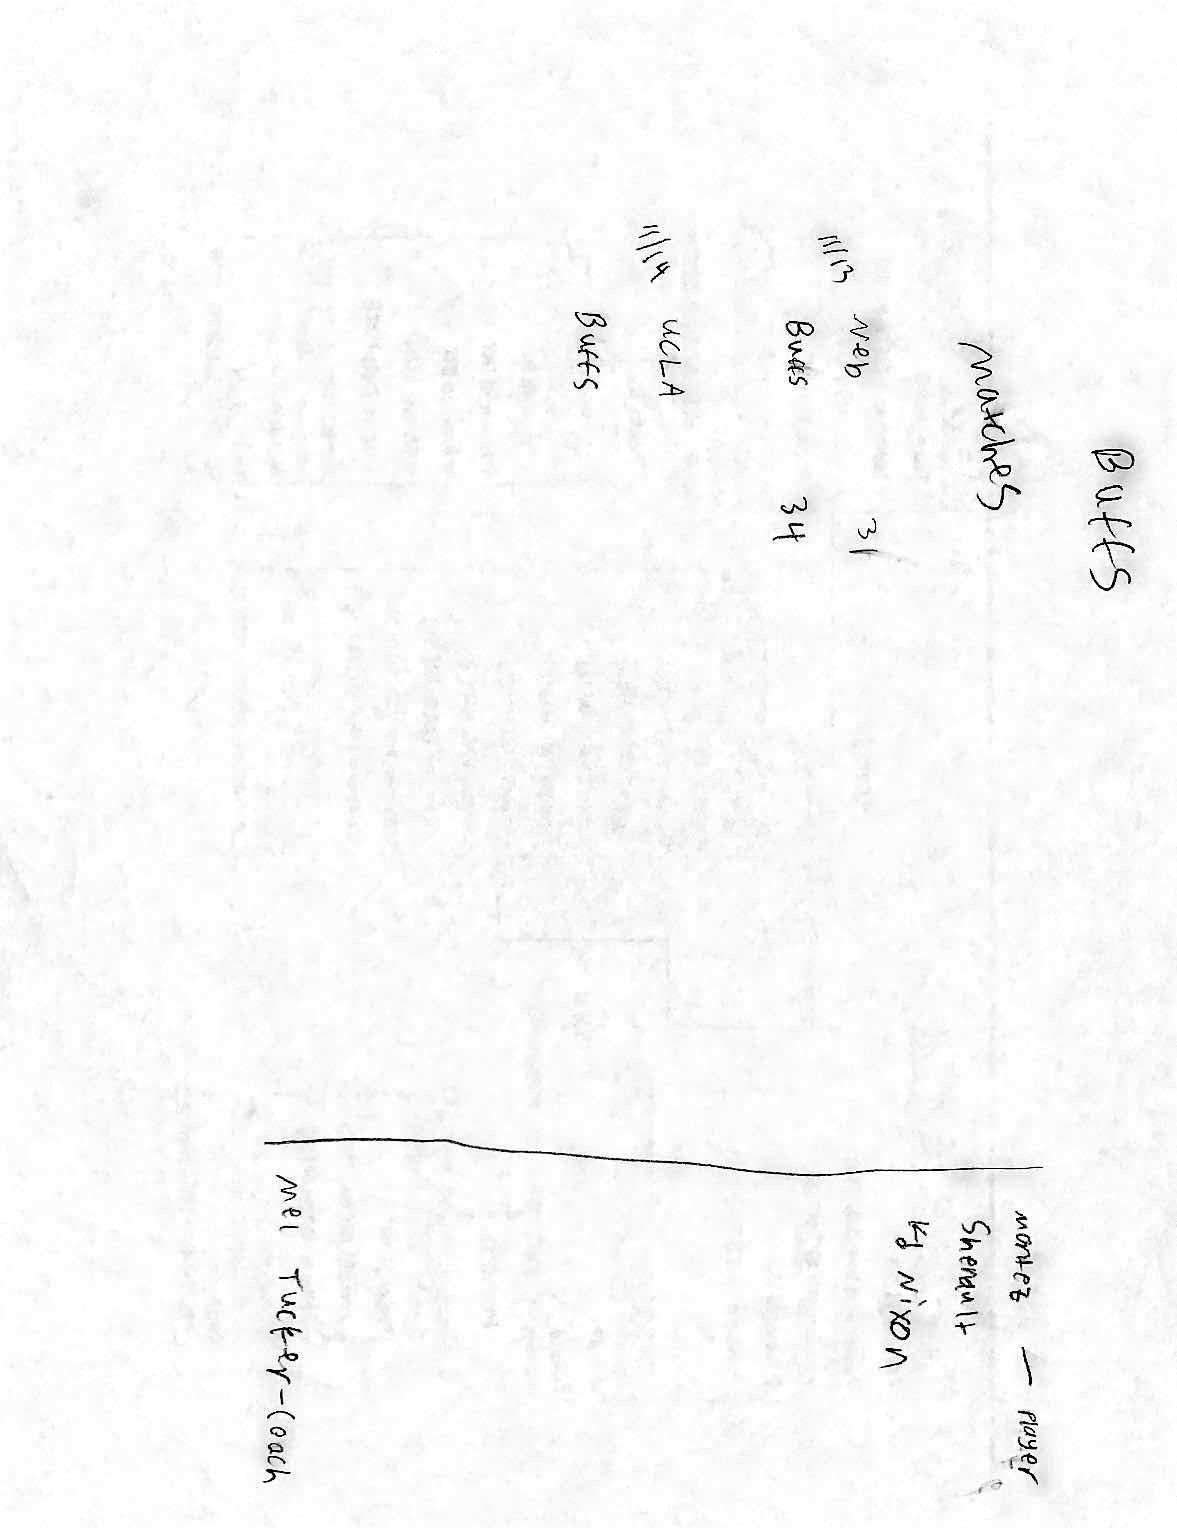 Buffs
Matches
11/13 Neb 31
Buffs 34
11/14 UCLA
Buffs
Montez — Player
Shenault
KJ Nixon
Mel Tucker-Coach